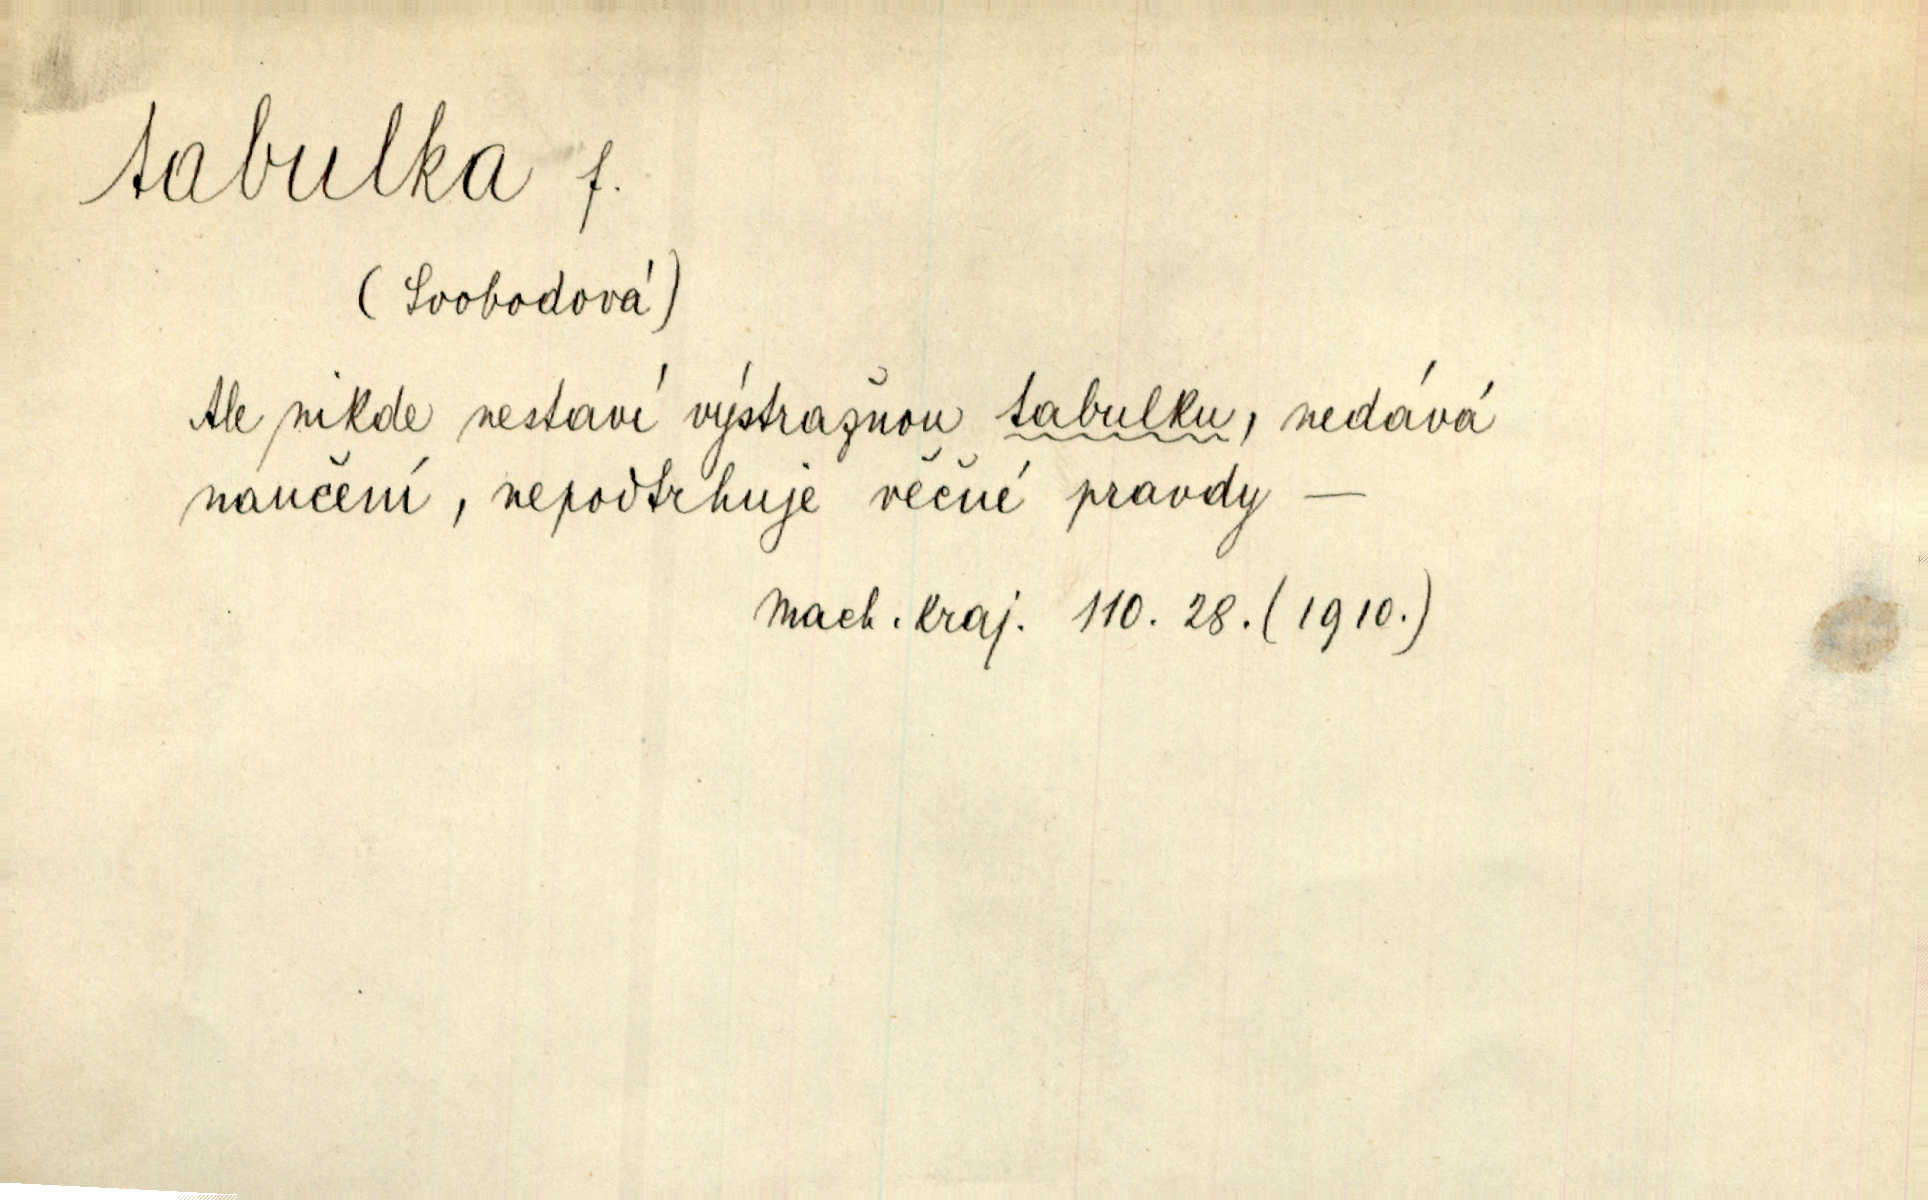 tabulka f.
(Svobodová)
Ale nikde nestaví výstražnou tabulku, nedává
naučení, nepodtrhuje věčné pravdy —
Mach. Kraj. 110. 28. (1910.)